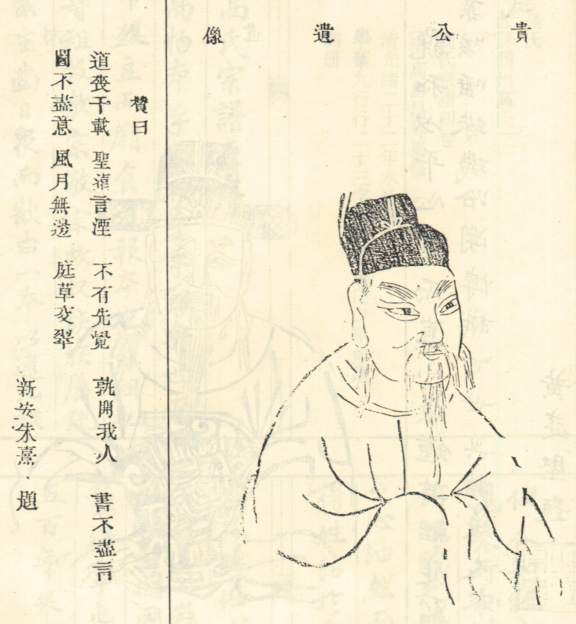 貴公遺像
賛曰
道喪千載 聖遠言湮 不有先覺 孰開我人 書不盡言
圖不盡意 風月無邊 庭草交翠
新安朱熹 題